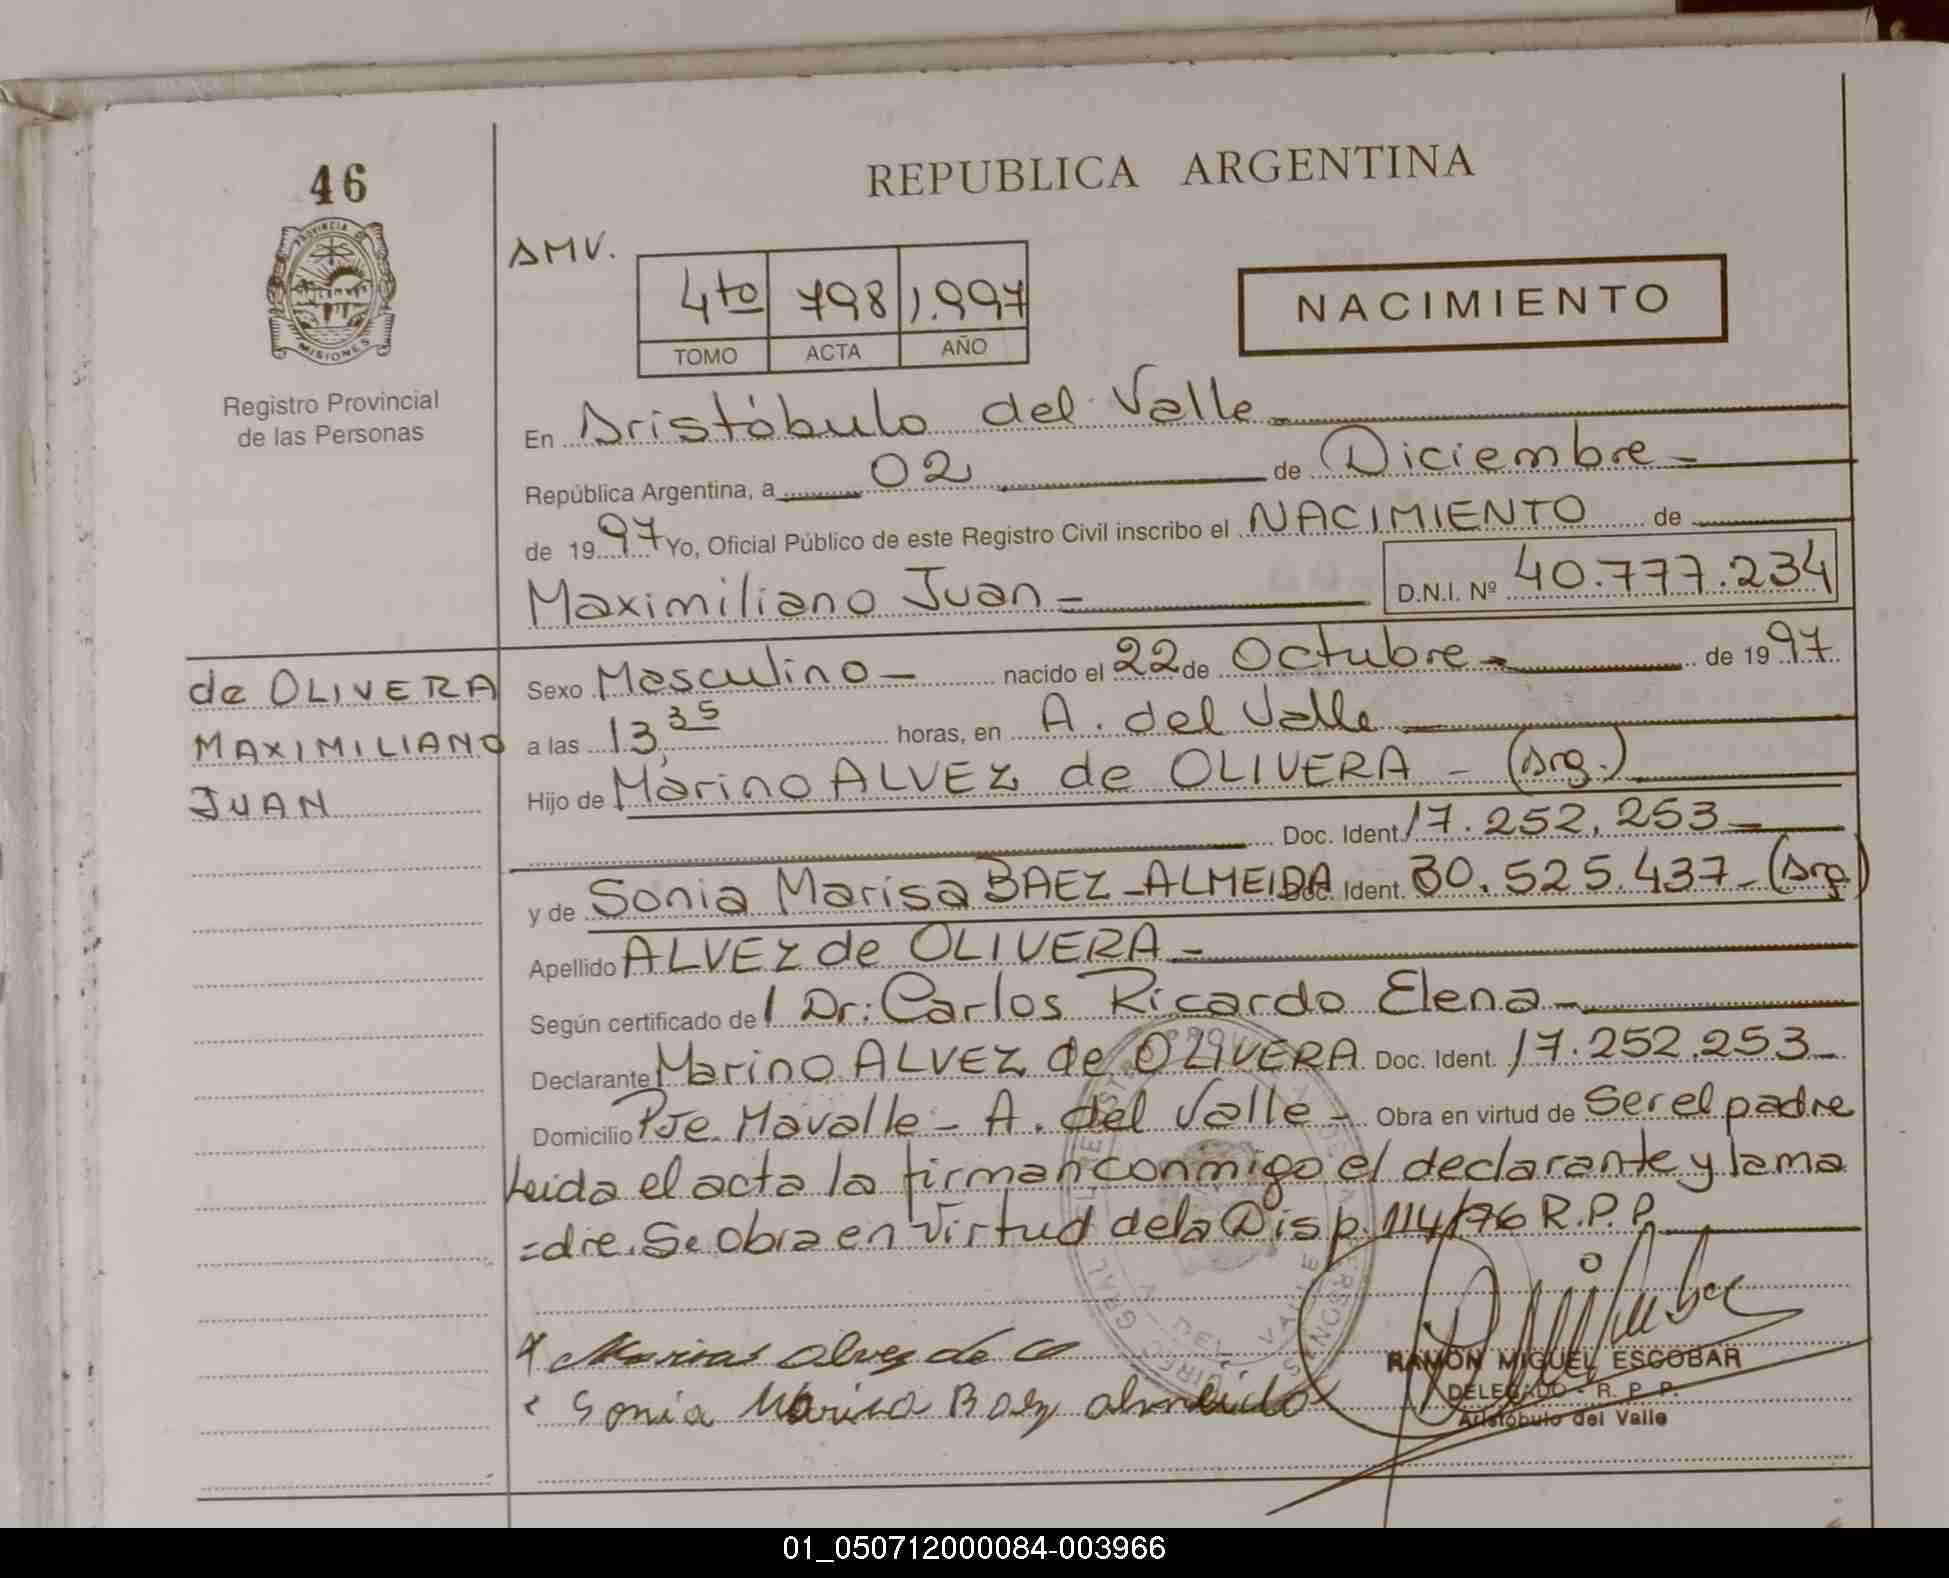 46
PROVINCIA DE
MISIONES
Registro Provincial
de las Personas
REPUBLICA ARGENTINA
AMV.
4to 798 1.997
TOMO ACTA AÑO
NACIMIENTO
En Aristóbulo del Valle
República Argentina, a 02 de Diciembre
de 1997 Yo, Oficial Público de este Registro Civil inscribo el NACIMIENTO de
Maximiliano Juan D.N.I. Nº 40.777.234
de OLIVERA
MAXIMILIANO
JUAN
Sexo Masculino nacido el 22 de Octubre de 1997
a las 13,35 horas, en A. del Valle
Hijo de Marino ALVEZ de OLIVERA - (Arg.)
Doc. Ident. 17.252.253
y de Sonia Marisa BAEZ-ALMEIDA Doc. Ident. 30.525.437 - (Arg)
Apellido ALVEZ de OLIVERA
Según certificado del Dr: Carlos Ricardo Elena
Declarante Marino ALVEZ de OLIVERA Doc. Ident. 17.252.253
Domicilio Pje. Mavalle - A. del Valle - Obra en virtud de Ser el padre
Leida el acta la firman conmigo el declarante y la ma
=dre. Se obra en virtud de la Disp. 114/76 R.P.P.
Sonia Marisa Baez almeida
RAMÓN MIGUEL ESCOBAR
DELEGADO - R. P. P.
Aristóbulo del Valle
01_050712000084-003966